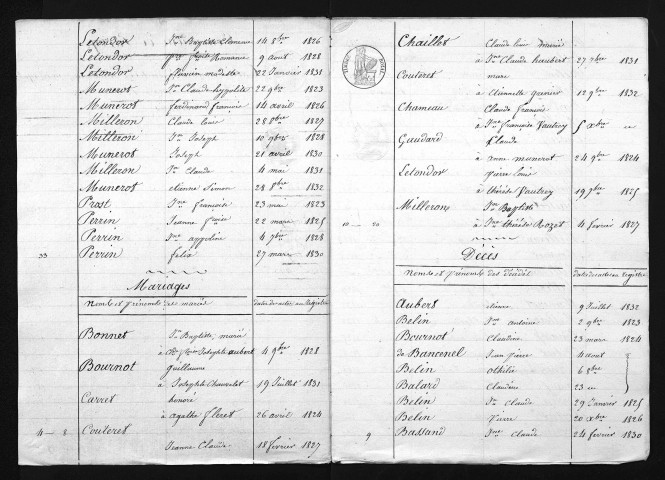 Letondor Jn Baptiste Clemence 14 8bre 1826
Letondor Romane 9 aout 1828
Letondor flavien modeste 22 Janvier 1831
Munerot Jn Claude hyppolite 22 9bre 1823
Munerot ferdinand francois 14 avril 1826
Milleron Claude louis 28 8bre 1827
Milleron Jn Joseph 10 9bre 1828
Munerot Joseph 21 avril 1830
Milleron Jn Claude 4 mai 1831
Munerot etienne Simon 28 1832
Prost Jn francois 23 mai 1823
Perrin Jeanne 22 mars 1825
Perrin appoline 4 7bre 1828
33 Perrin felix 27 mars 1830
Mariages
Noms et prénoms des mariés Dates des actes au Registre
Bonnet Jn Baptiste, marié
à Josephte Aubert 4 9bre 1828
Bournot guillaume
à Josephte Chauvelet 19 Juillet 1831
Carret honoré
à agathe fleret 26 avril 1824
4 8 Couteret
Jeanne Claude 18 fevrier 1827
Chaillet Claude louis marié
à Jne Claude haubert 27 7bre 1831
Couteret marc
à etiennette grenier 12 9bre 1832
Chameau Claude francois
à Jne francoise Vautrey 5 Xbre
Gaudard Claude
à anne munerot 24 9bre 1824
Letondor pierre louis
à thérèse Vautrey 19 7bre 1825
Milleron Jn Baptiste
10 20 à thérèse Rozet 4 fevrier 1827
Décès
Noms et prénoms des décédés Dates des actes au Registre
Aubert 9 Juillet 1832
Belin Jn antoine 2 9bre 1823
Bournot Claudine 23 mars 1824
de Bancenel Jean pierre 4 aout
Belin othilie 6 8bre
Balard Claudine 23
Belin Jn Claude 29 Janvier 1825
Belin Pierre 20 Xbre 1826
9 Bassand Jne Claude 24 fevrier 1830